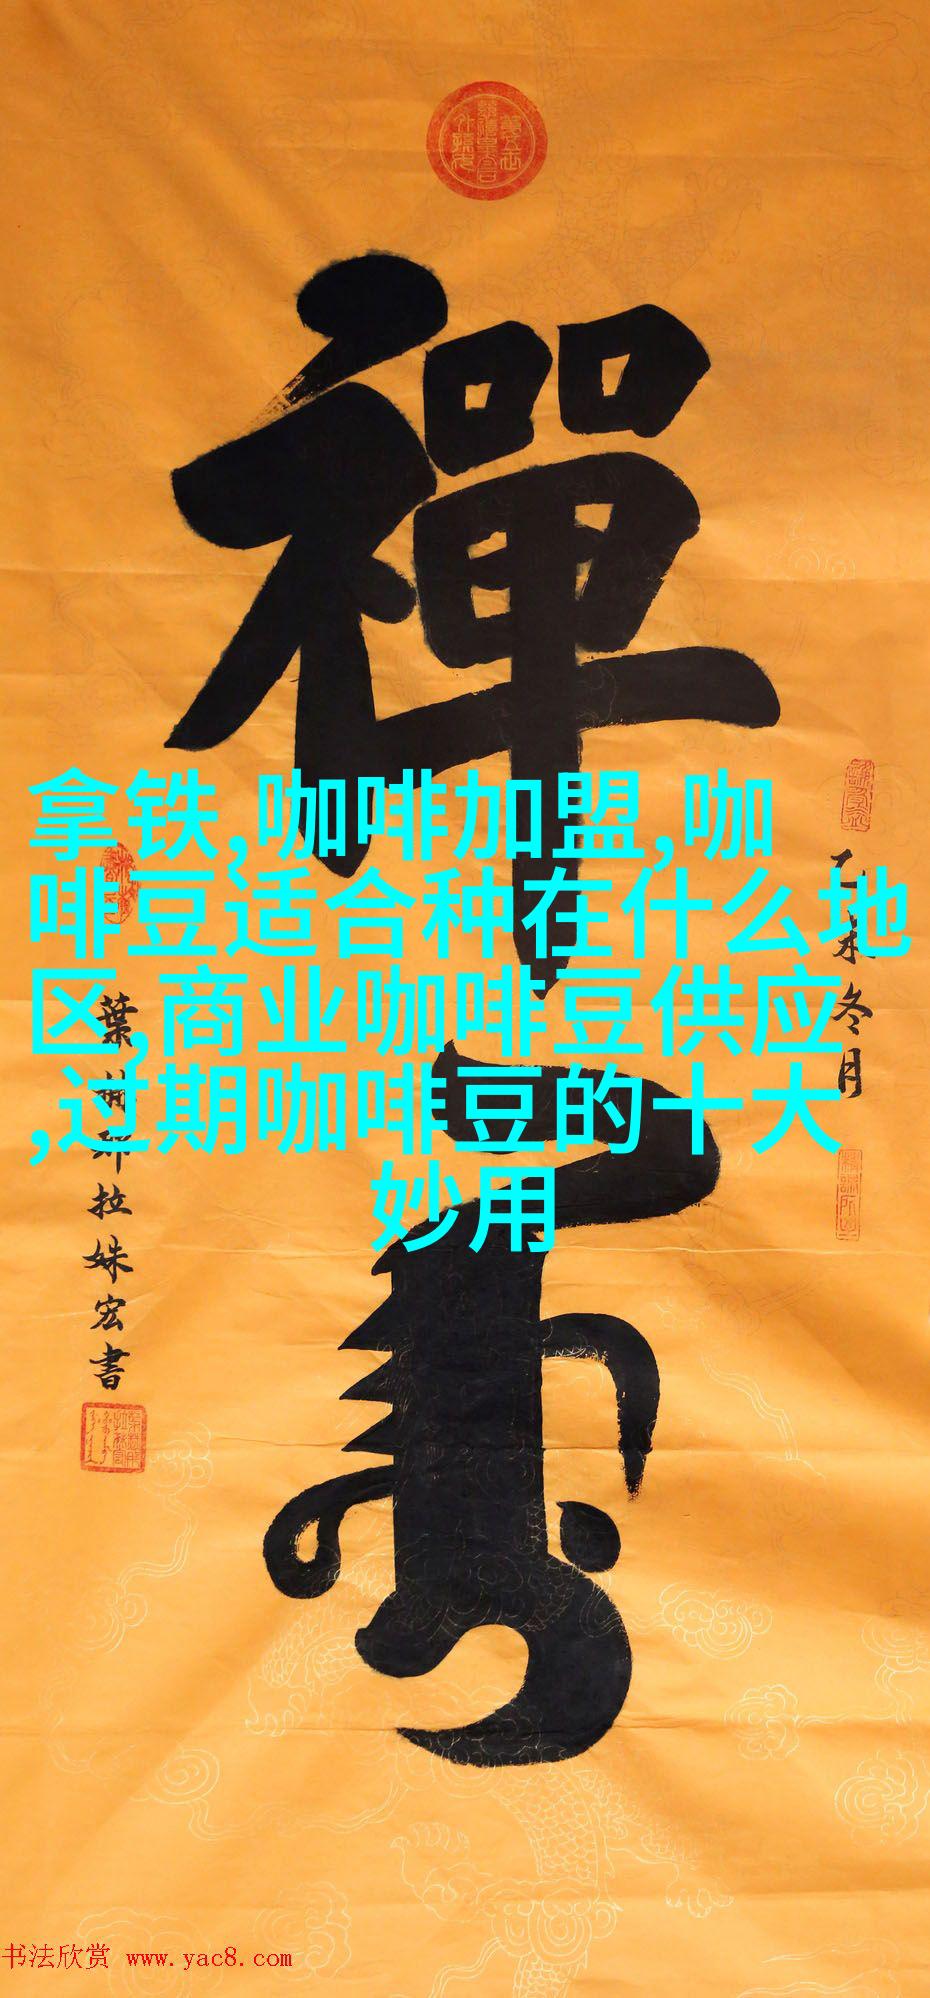 禪
拿铁,咖啡加盟,咖
啡豆适合种在什么地
区,商业咖啡豆供应
,过期咖啡豆的十大
妙用
冬月
葉赫那拉姝宏書
书法欣赏 www.yac8.com